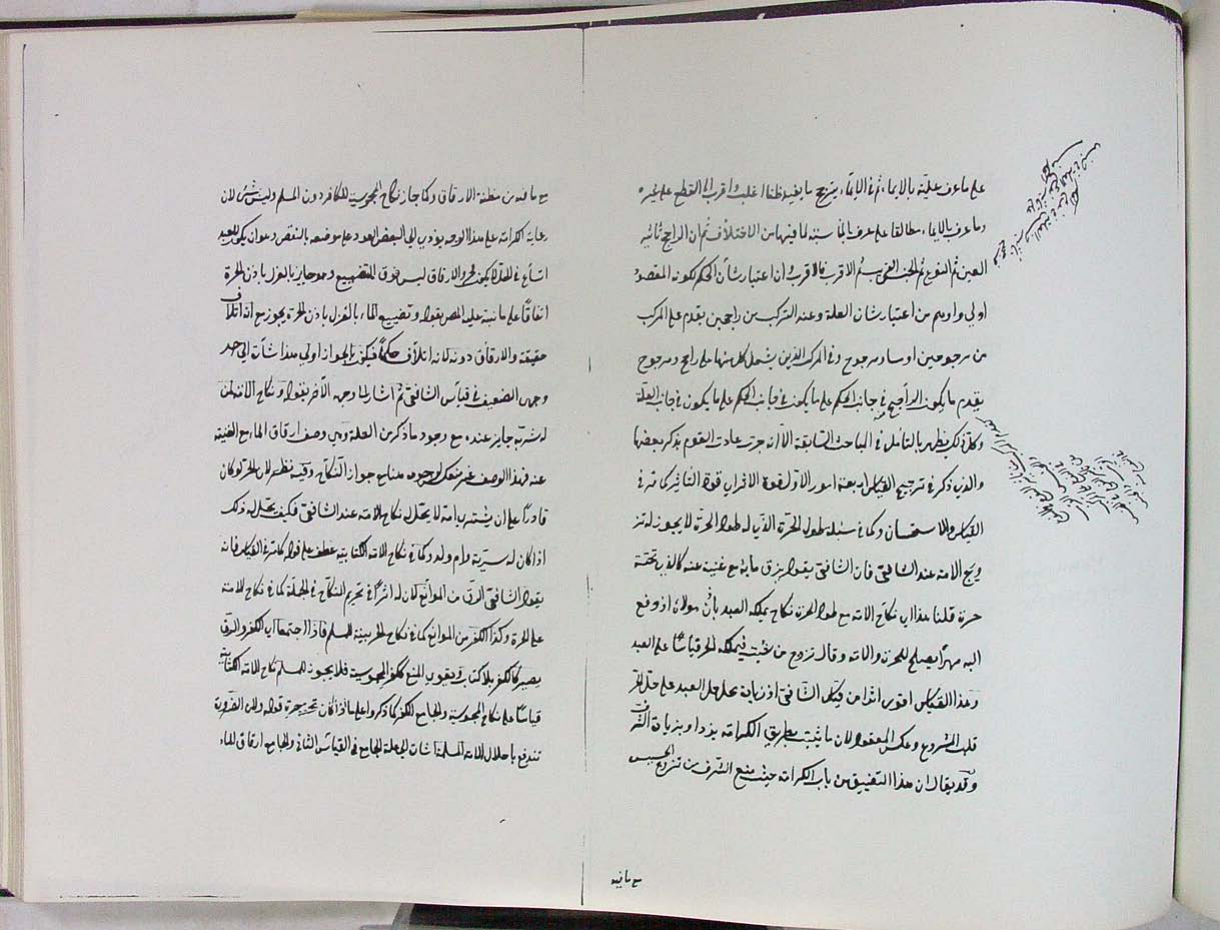 على ما عرف عليته بالايماء ثم في الايماء يترجح ما يفيد ظنا اغلب واقرب الى القطع على غيره
وما عرف بالايماء مطلقا على عرف بالمناسبة لما فيها من الاختلاف ثم ان الراجح تاثير
العين ثم النوع ثم الجنس القريب ثم الاقرب فالاقرب وان اعتبار شأن الحكم لكونه المقصود
اولى واهم من اعتبار شان العلة وعند التركب من راجحين يقدم على المركب
من مرجوحين او مساو ومرجوح وفي المركبين الذين يشتمل كل منهما على راجح ومرجوح
يقدم ما يكون الراجح في جانب الحكم على ما يكون في جانب العلة
وكل ذلك يظهر بالتأمل في المباحث السابقة الا انه جرت عادت القوم بذكر بعضها
والذي ذكر في ترجيح القياس اربعة امور الاول قوة الاثر اي قوة التاثير كما مر في
القياس والاستحسان وكما في مسئلة طول الحرة الذي له طول الحرة لا يجوز له تز
ويج الامة عند الشافعي فان الشافعي يقول يرق ماءه مع غنية عنه كالذي تحته
حرة قلنا هذا اي نكاح الامة مع طول الحرة نكاح يملكه العبد باذن مولاه اذ دفع
اليه مهرا يصلح للحرة والامة وقال تزوج من شئت فيملكه الحر قياسا على العبد
وهذا القياس اقوى اثرا من قياس الشافعي اذ زيادة محل حل العبد على حل الحر
قلب المشروع وعكس المعقول لان ما يثبت بطريق الكرامة يزداد بزيادة الشرف
وقد يقال ان هذا التضييق من باب الكرامة حيث منع الشرف من تزوج الخسيس
مع ما فيه
مع ما فيه من مظنة الارقاق وكما جاز نكاح المجوسية للكافر دون المسلم وليس بشئ لان
رعاية الكرامة على هذا الوجه يؤدي الى العود على موضعه بالنقض وهو ان يكون للعبد
اتساع في الحل لا يكون للحر والارقاق ليس فوق التضييع وهو جايز بالعزل باذن الحرة
اتفاقا على ما نبه عليه المص بقوله وتضييع الماء بالعزل باذن الحرة يجوز مع انه اتلاف
حقيقة والارقاق دونه لانه اتلاف حكما فيكون بالجواز اولى هذا شأت الى احد
وجهي الضعف في قياس الشافعي ثم اشار الى وجه الآخر بقوله ونكاح الامة لمن
له سرية جايز عنده مع وجود ما ذكر من العلة وهي وصف ارقاق الماء مع الغنية
عنه فهذا الوصف غير منعكس لوجوده مع جواز النكاح وفيه نظر لان الحر لو كان
قادرا على ان يشتري امة لا يحل له نكاح الامة عند الشافعي فكيف يحل له ذلك
اذا كان له سرية وام ولد وكما في نكاح الامة الكتابية عطف على قوله كما مر في القياس فانه
يقول الشافعي الرق من الموانع كان له اثرا في تحريم النكاح في الجملة كما في نكاح الامة
على الحرة وكذا الكفر من الموانع كما في نكاح الحربية للمسلم فاذا اجتمعا اي الكفر والرق
يصير كالكفر بلا كتاب فيقوى المنع ككفر المجوسية فلا يجوز للمسلم نكاح الامة الكتابية
قياسا على نكاح المجوسية والجامع الكفر
تندفع باحلال الامة المسلمة اشات الى علة الجامع في القياس الثاني والجامع ارقاق الماء